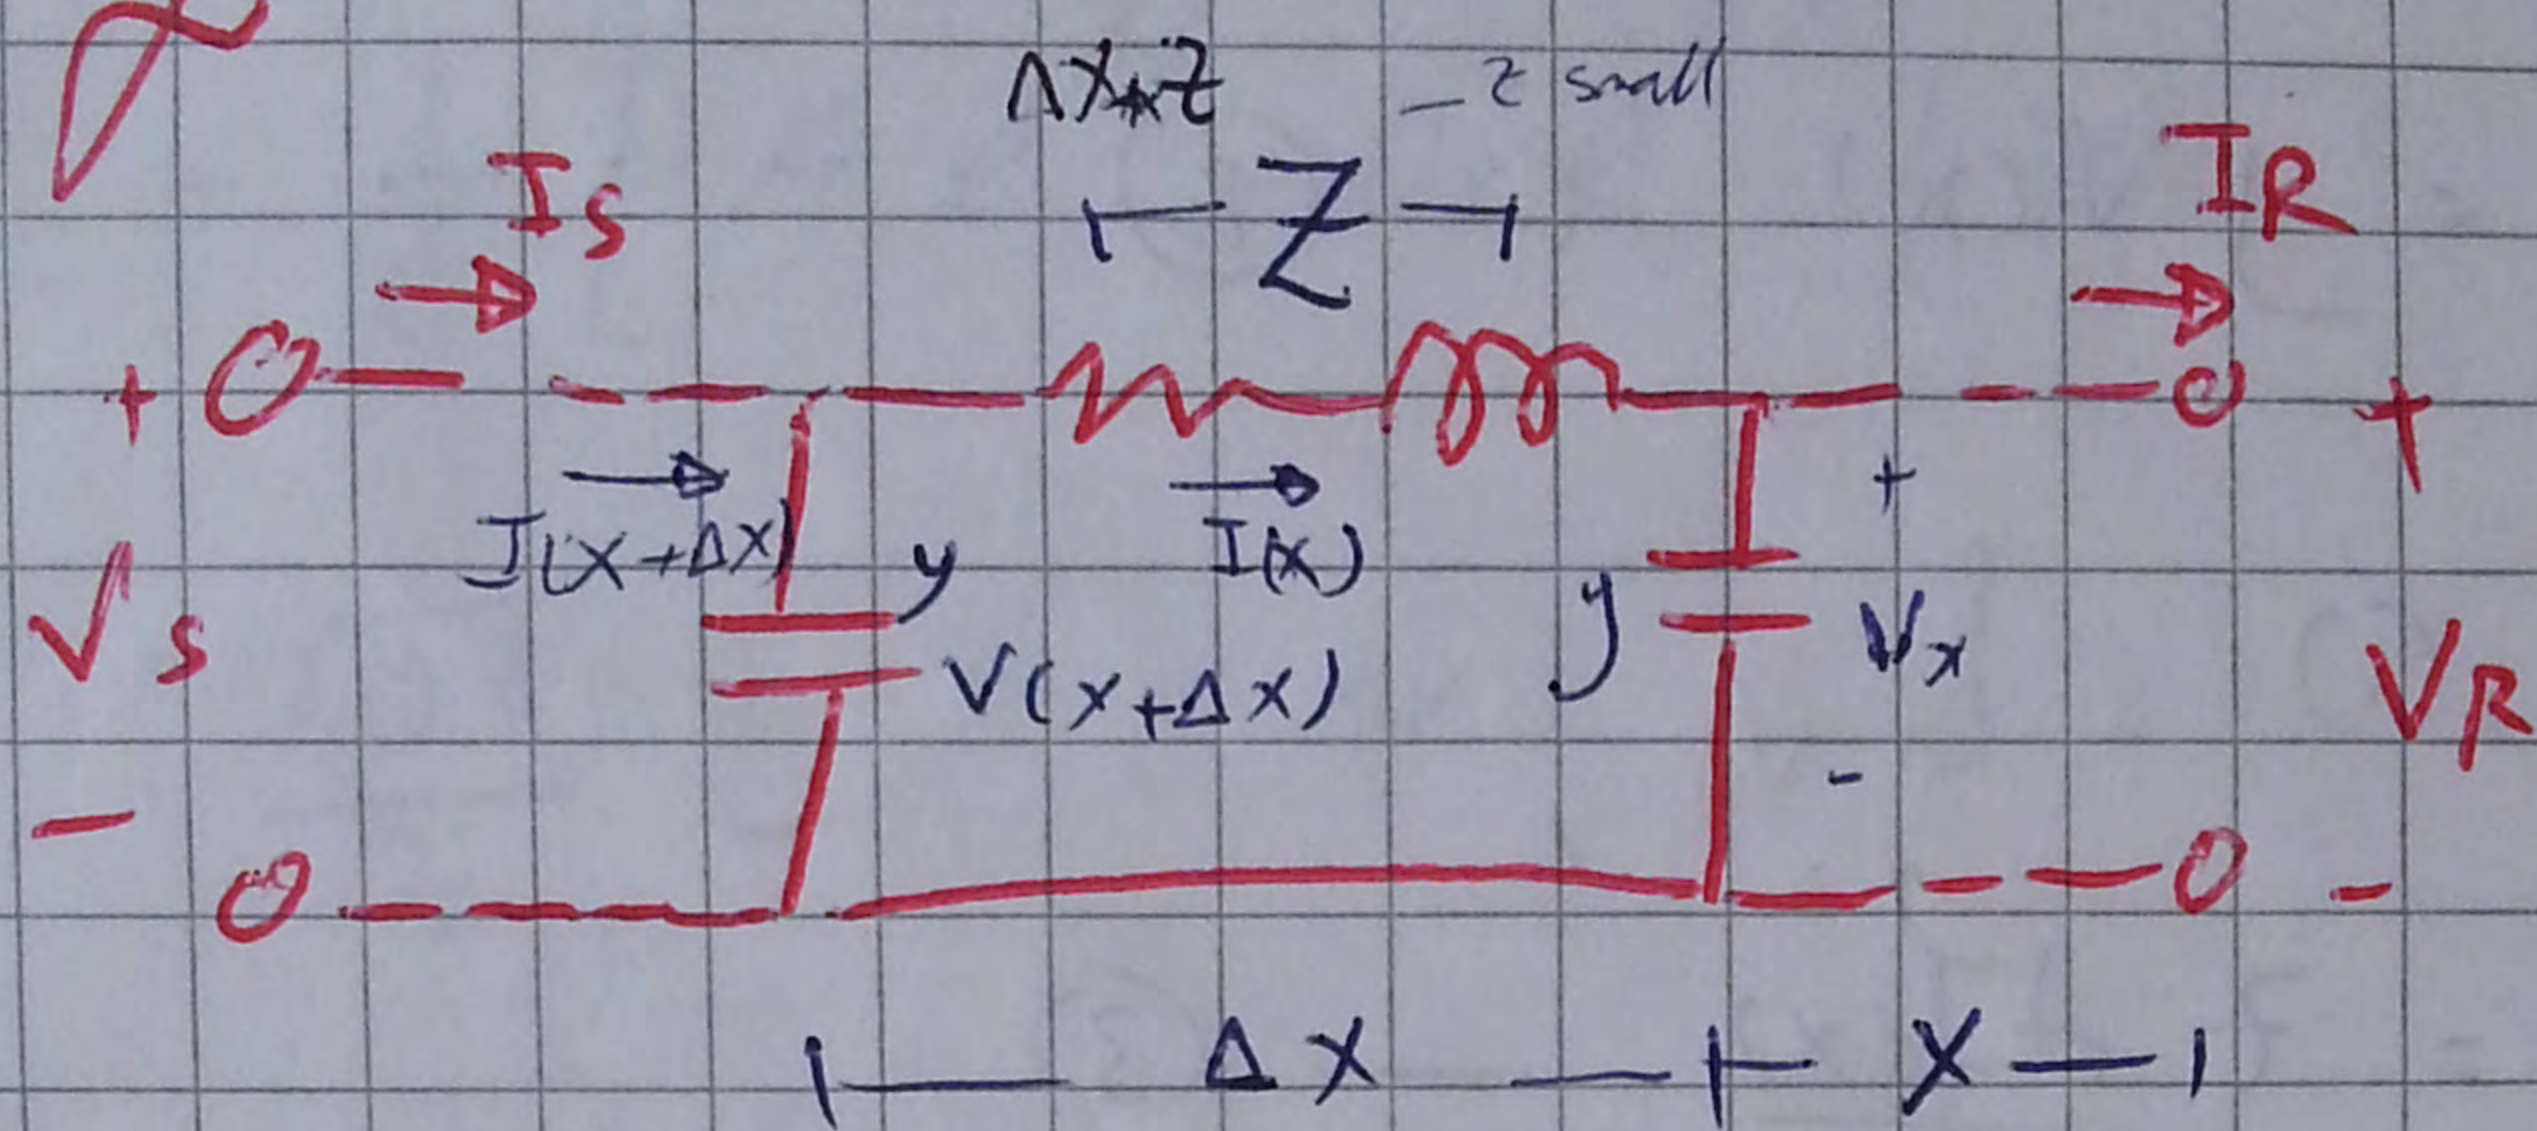 ΔX*Z - z small
Is
Z
IR
+
+
I(X+ΔX)
y
I(X)
+
Vs
V(X+ΔX)
y
Vx
VR
-
-
-
ΔX
X